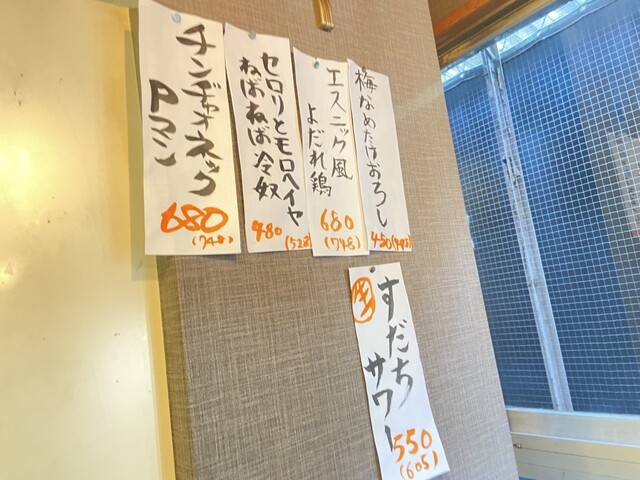 梅なめたけおろし
450(495)
エスニック風
よだれ鶏
680
(748)
セロリとモロヘイヤ
ねばねば冷奴
480
(528)
チンヂャオネック
Pマン
680
(748)
生
すだち
サワー
550
(605)